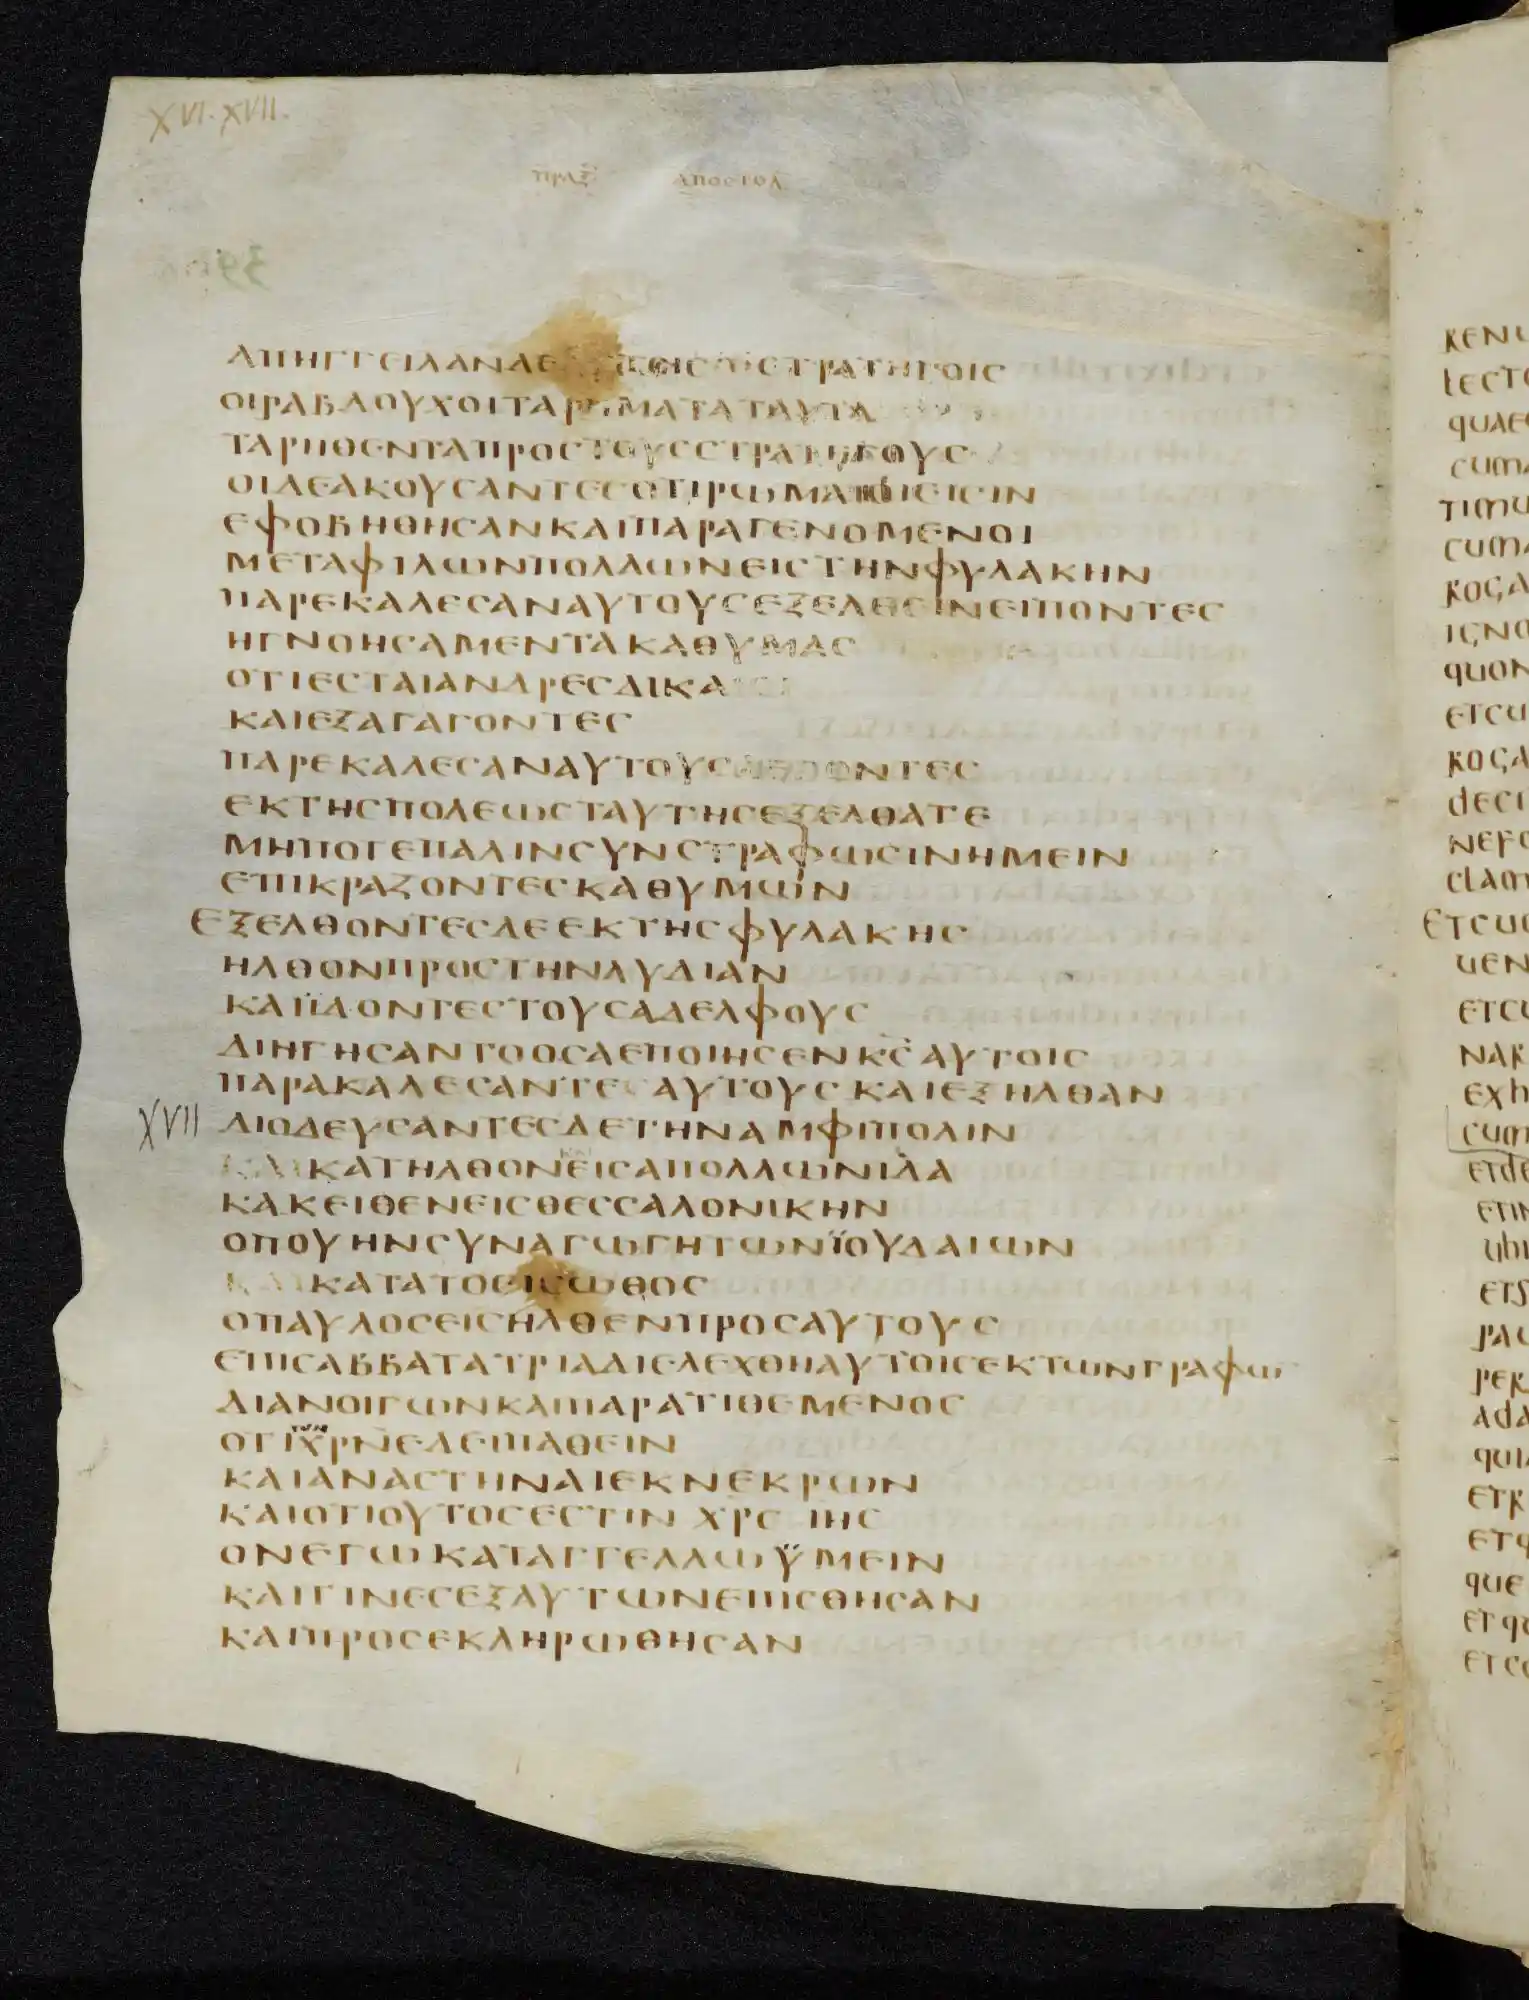 XVI. XVII.
ΠΡΑΞ ΑΠΟΣΤΟΛ
39
ΑΠΗΓΓΕΙΛΑΝΔΕ ϹΤΡΑΤΗΓΟΙϹ
ΟΙΡΑΒΔΟΥΧΟΙΤΑΡΗΜΑΤΑΤΑΥΤΑ
ΤΑΡΗΘΕΝΤΑΠΡΟϹΤΟΥϹϹΤΡΑΤΗΓΟΥϹ
ΟΙΔΕΑΚΟΥϹΑΝΤΕϹΟΤΙΡΩΜΑΙΟΙΕΙϹΙΝ
ΕΦΟΒΗΘΗϹΑΝΚΑΙΠΑΡΑΓΕΝΟΜΕΝΟΙ
ΜΕΤΑΦΙΛΩΝΠΟΛΛΩΝΕΙϹΤΗΝΦΥΛΑΚΗΝ
ΠΑΡΕΚΑΛΕϹΑΝΑΥΤΟΥϹΕΞΕΛΘΕΙΝΕΙΠΟΝΤΕϹ
ΗΓΝΟΗϹΑΜΕΝΤΑΚΑΘΥΜΑϹ
ΟΤΙΕϹΤΑΙΑΝΔΡΕϹΔΙΚΑ
ΚΑΙΕΞΑΓΑΓΟΝΤΕϹ
ΠΑΡΕΚΑΛΕϹΑΝΑΥΤΟΥϹ ΝΤΕϹ
ΕΚΤΗϹΠΟΛΕΩϹΤΑΥΤΗϹΕΞΕΛΘΑΤΕ
ΜΗΠΟΤΕΠΑΛΙΝϹΥΝϹΤΡΑΦΩϹΙΝΗΜΕΙΝ
ΕΠΙΚΡΑΖΟΝΤΕϹΚΑΘΥΜΩΝ
ΕΞΕΛΘΟΝΤΕϹΔΕΕΚΤΗϹΦΥΛΑΚΗϹ
ΗΛΘΟΝΠΡΟϹΤΗΝΛΥΔΙΑΝ
ΚΑΙΪΔΟΝΤΕϹΤΟΥϹΑΔΕΛΦΟΥϹ
ΔΙΗΓΗϹΑΝΤΟΟϹΑΕΠΟΙΗϹΕΝΚϹΑΥΤΟΙϹ
ΠΑΡΑΚΑΛΕϹΑΝΤΕϹΑΥΤΟΥϹΚΑΙΕΞΗΛΘΑΝ
XVII ΔΙΟΔΕΥϹΑΝΤΕϹΔΕΤΗΝΑΜΦΙΠΟΛΙΝ
ΚΑΙΚΑΤΗΛΘΟΝΕΙϹΑΠΟΛΛΩΝΙΔΑ
ΚΑΚΕΙΘΕΝΕΙϹΘΕϹϹΑΛΟΝΙΚΗΝ
ΟΠΟΥΗΝϹΥΝΑΓΩΓΗΤΩΝΪΟΥΔΑΙΩΝ
ΚΑΙΚΑΤΑΤΟΕΙΩΘΟϹ
ΟΠΑΥΛΟϹΕΙϹΗΛΘΕΝΠΡΟϹΑΥΤΟΥϹ
ΕΠΙϹΑΒΒΑΤΑΤΡΙΑΔΙΕΛΕΧΘΗΑΥΤΟΙϹΕΚΤΩΝΓΡΑΦΩ
ΔΙΑΝΟΙΓΩΝΚΑΙΠΑΡΑΤΙΘΕΜΕΝΟϹ
ΟΤΙΧΡΝΕΔΕΙΠΑΘΕΙΝ
ΚΑΙΑΝΑϹΤΗΝΑΙΕΚΝΕΚΡΩΝ
ΚΑΙΟΤΙΟΥΤΟϹΕϹΤΙΝ ΧΡϹ ΙΗϹ
ΟΝΕΓΩΚΑΤΑΓΓΕΛΛΩΫΜΕΙΝ
ΚΑΙΤΙΝΕϹΕΞΑΥΤΩΝΕΠΙϹΘΗϹΑΝ
ΚΑΙΠΡΟϹΕΚΛΗΡΩΘΗϹΑΝ